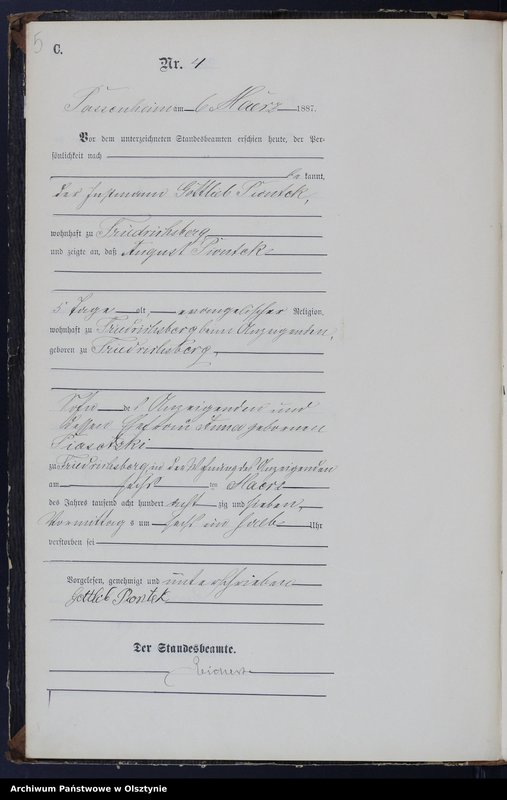 5
C.
Nr. 4
Passenheim am 6 Maerz 1887.
Vor dem unterzeichneten Standesbeamten erschien heute, der Per-
sönlichkeit nach
be kannt,
der Instmann Gottlieb Piontek,
wohnhaft zu Friedrichsberg
und zeigte an, daß August Piontek
5 Tage alt, evangelischer Religion,
wohnhaft zu Friedrichsberg beim Anzeigenden,
geboren zu Friedrichsberg,
Sohn de s Anzeigenden und
dessen Ehefrau Anna geborenen
Piasetzki
zu Friedrichsberg in der Wohnung des Anzeigenden
am ten Maerz
des Jahres tausend acht hundert acht zig und sieben,
Vormittag s um halb Uhr
verstorben sei
Vorgelesen, genehmigt und unterschrieben
Gottlieb Piontek
Der Standesbeamte.
Reichert
Archiwum Państwowe w Olsztynie